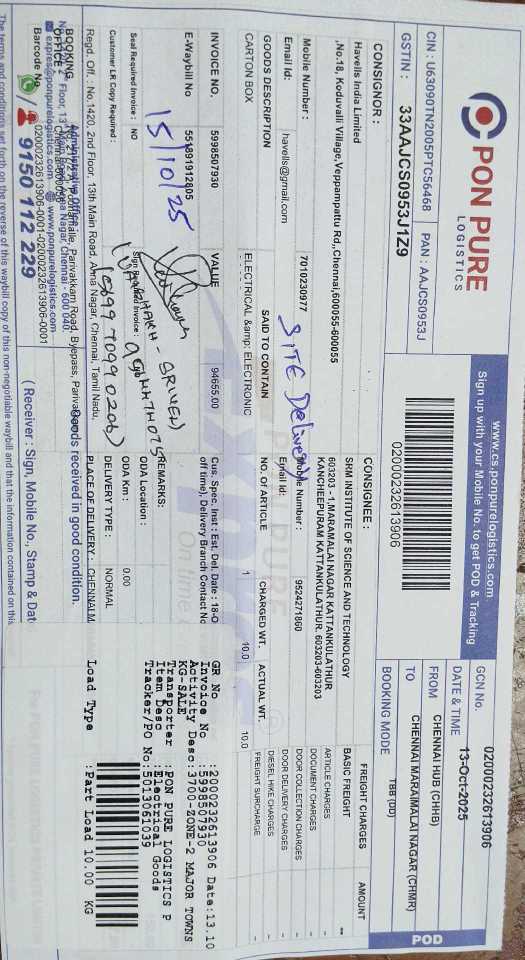 PON PURE
LOGISTICS
CIN : U63090TN2005PTC56468 PAN : AAJCS0953J
GSTIN : 33AAJCS0953J1Z9
www.cs.ponpurelogistics.com
Sign up with your Mobile No. to get POD & Tracking
02000232613906
GCN No. 02000232613906
DATE & TIME 13-Oct-2025
FROM CHENNAI HUB (CHHB)
TO CHENNAI MARAIMALAI NAGAR (CHMR)
BOOKING MODE TBB (DD)
POD
CONSIGNOR :
Havells India Limited
,No.18, Koduvalli Village,Veppampattu Rd,,Chennai,600055-600055
Mobile Number : 7010230977
Email Id: havells@gmail.com
CONSIGNEE :
SRM INSTITUTE OF SCIENCE AND TECHNOLOGY
603203 -1,MARAMALAI NAGAR KATTANKULATHUR
KANCHEEPURAM KATTANKULATHUR. 603203-603203
Mobile Number : 9524271860
Email Id:
SITE Delivery
FREIGHT CHARGES AMOUNT
BASIC FREIGHT --
ARTICLE CHARGES -
DOCUMENT CHARGES -
DOOR COLLECTION CHARGES -
DOOR DELIVERY CHARGES -
DIESEL HIKE CHARGES -
FREIGHT SURCHARGE -
GOODS DESCRIPTION SAID TO CONTAIN NO. OF ARTICLE CHARGED WT. ACTUAL WT.
CARTON BOX ELECTRICAL &amp; ELECTRONIC 1 10.0 10.0
INVOICE NO. 5998507930 VALUE 94655.00
E-Waybill No 551891912805
15/10/25
Seal Required Invoice : NO
Sign Required Invoice :
Customer LR Copy Required :
Cus. Spec. Inst : Est. Del. Date : 18-O
off time), Delivery Branch Contact No
REMARKS:
ODA Location :
ODA Km : 0.00
DELIVERY TYPE : NORMAL
PLACE OF DELIVERY : CHENNAI M
GR No :2000232613906 Date:13.10
Invoice No :5998507930
Activity Desc:3700-ZONE-2 MAJOR TOWNS
KG-SALE
Transporter :PON PURE LOGISTICS P
Item Desc :Electrical Goods
Tracker/PO No:5013061039
Load Type :Part Load 10.00 KG
Regd. Off. : No.1420, 2nd Floor, 13th Main Road, Anna Nagar, Chennai, Tamil Nadu,
Administrative Office
BOOKING
OFFICE :
Parivakkam Road, Byepass,
Anna Nagar, Chennai - 600 040.
Goods received in good condition.
expres@ponpurelogistics.com www.ponpurelogistics.com
Barcode No 02000232613906-0001-02000232613906-0001
9150 112 229
( Receiver : Sign, Mobile No., Stamp & Dat
The terms and conditions set forth on the reverse of this waybill copy of this non-negotiable waybill and that the information contained on this